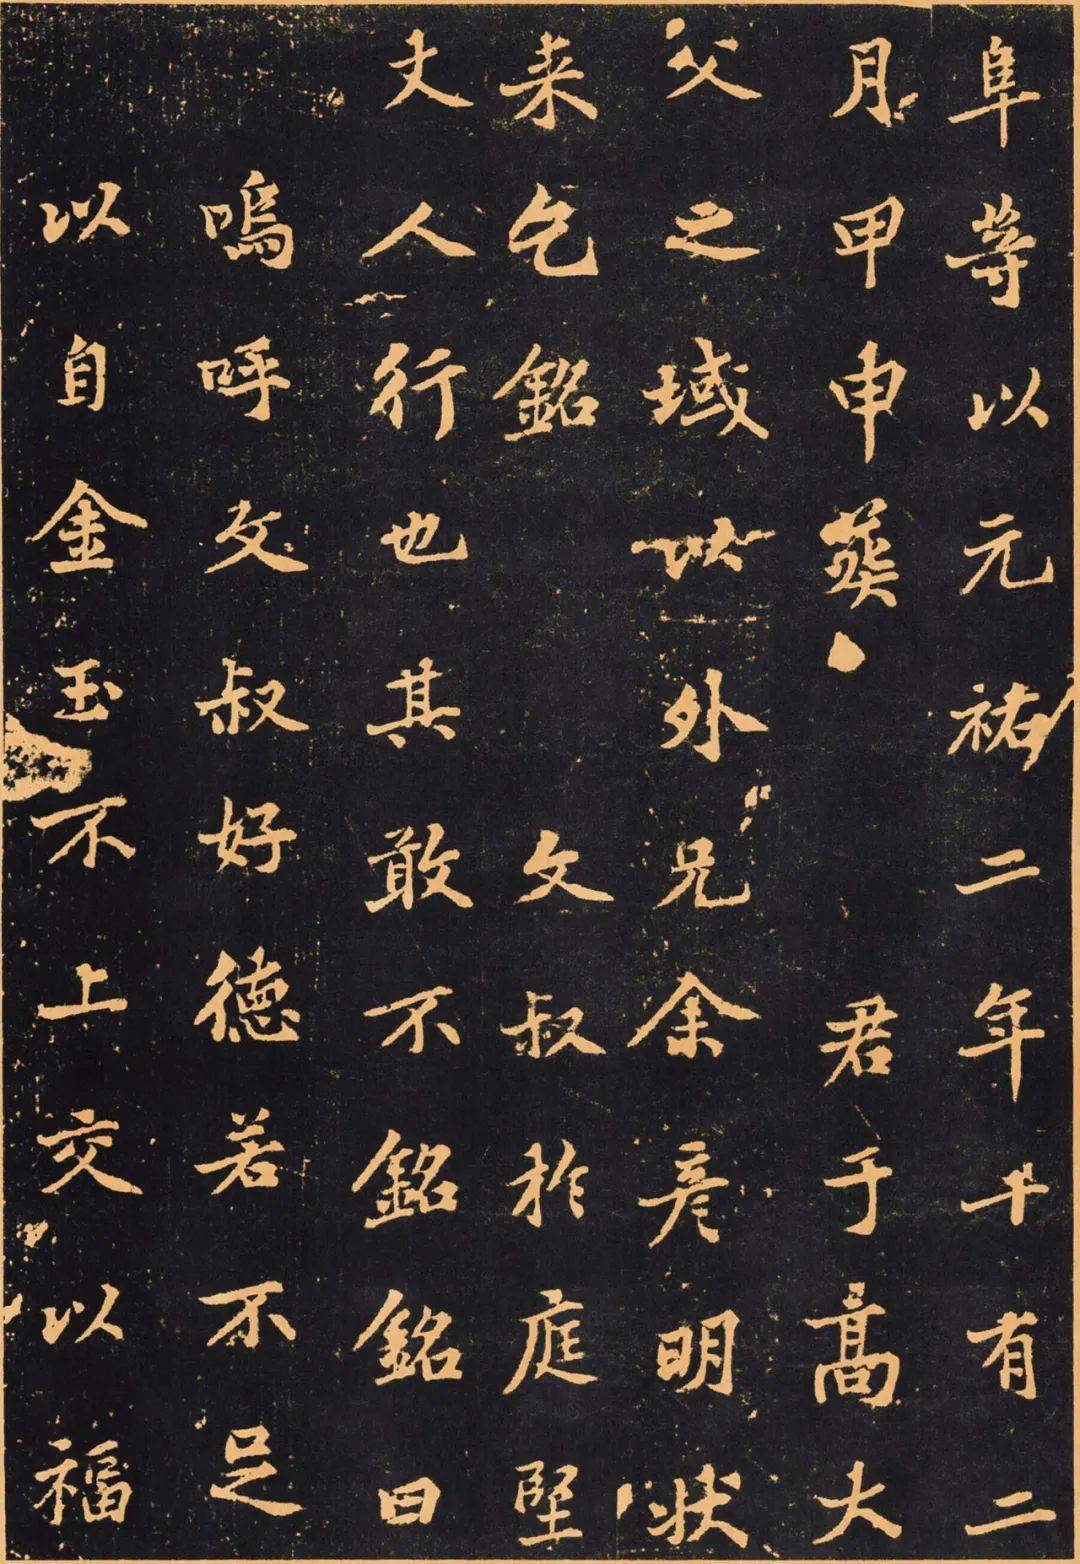 阜等以元祐二年十有二
月甲申葬 君于高大
父之域以外兄余彦明状
来乞銘 文叔於庭堅
丈人行也其敢不銘銘曰
嗚呼文叔好德若不足
以自金玉不上交以福